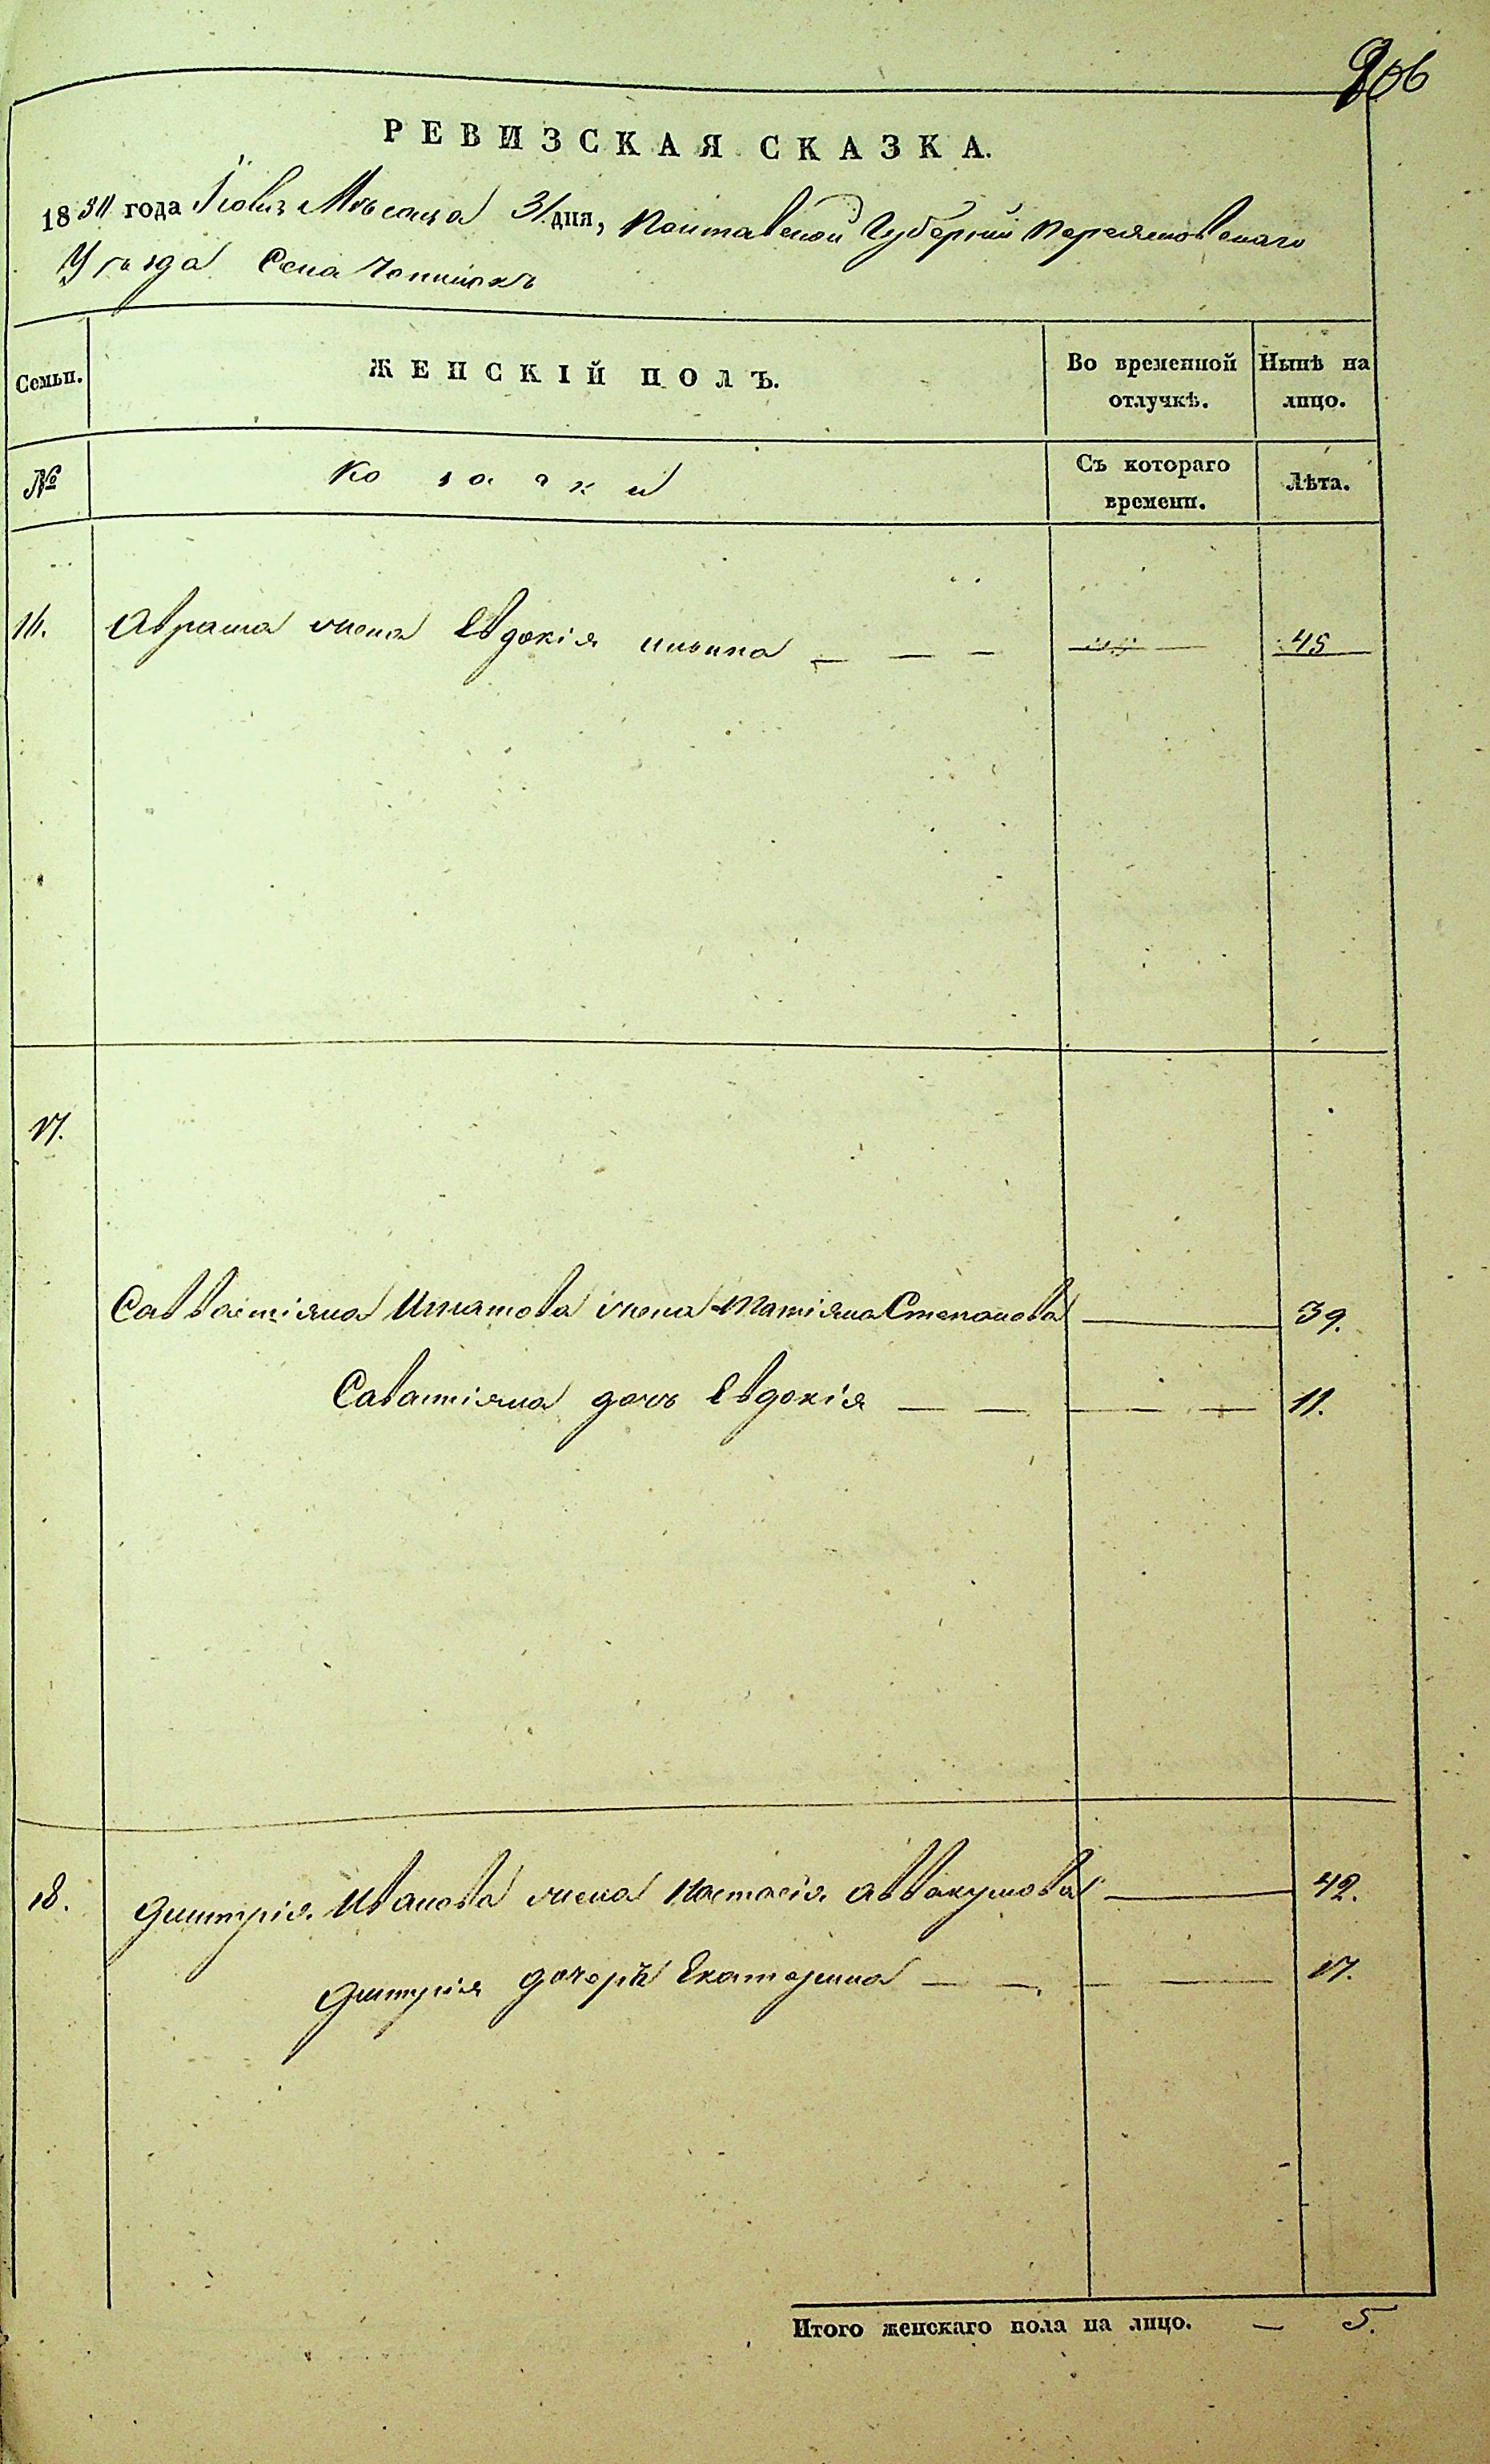 206
РЕВИЗСКАЯ СКАЗКА.
1834 года Іюля Мѣсяца 31 дня, Полтавской Губерніи Переяславскаго
Уѣзда Села
Семьи.
ЖЕНСКІЙ ПОЛЪ.
Во временной отлучкѣ.
Нынѣ на лицо.
№
Козаки
Съ котораго времени.
Лѣта.
16. Абрама жена Евдокія Ильина — — — 45
17.
Савастіяна Игнатова жена Татіяна Степанова — 39.
Савастіяна дочь Евдокія — — — — 11.
18. Дмитрія Иванова жена Настасія Аввакумова — 42.
Дмитрія дочерѣ Екатерина — — — — 17.
Итого женскаго пола на лицо. — 5.